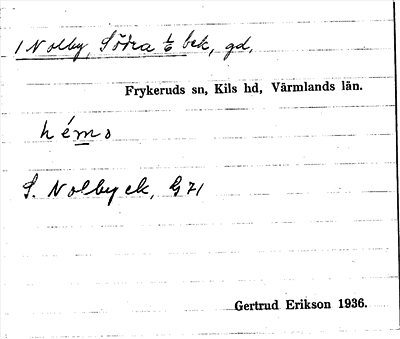 1 Nolby, Södra 1/6 bek, gd,
Frykeruds sn, Kils hd, Värmlands län.
hémo
S. Nolby ek, G 71
Gertrud Erikson 1936.